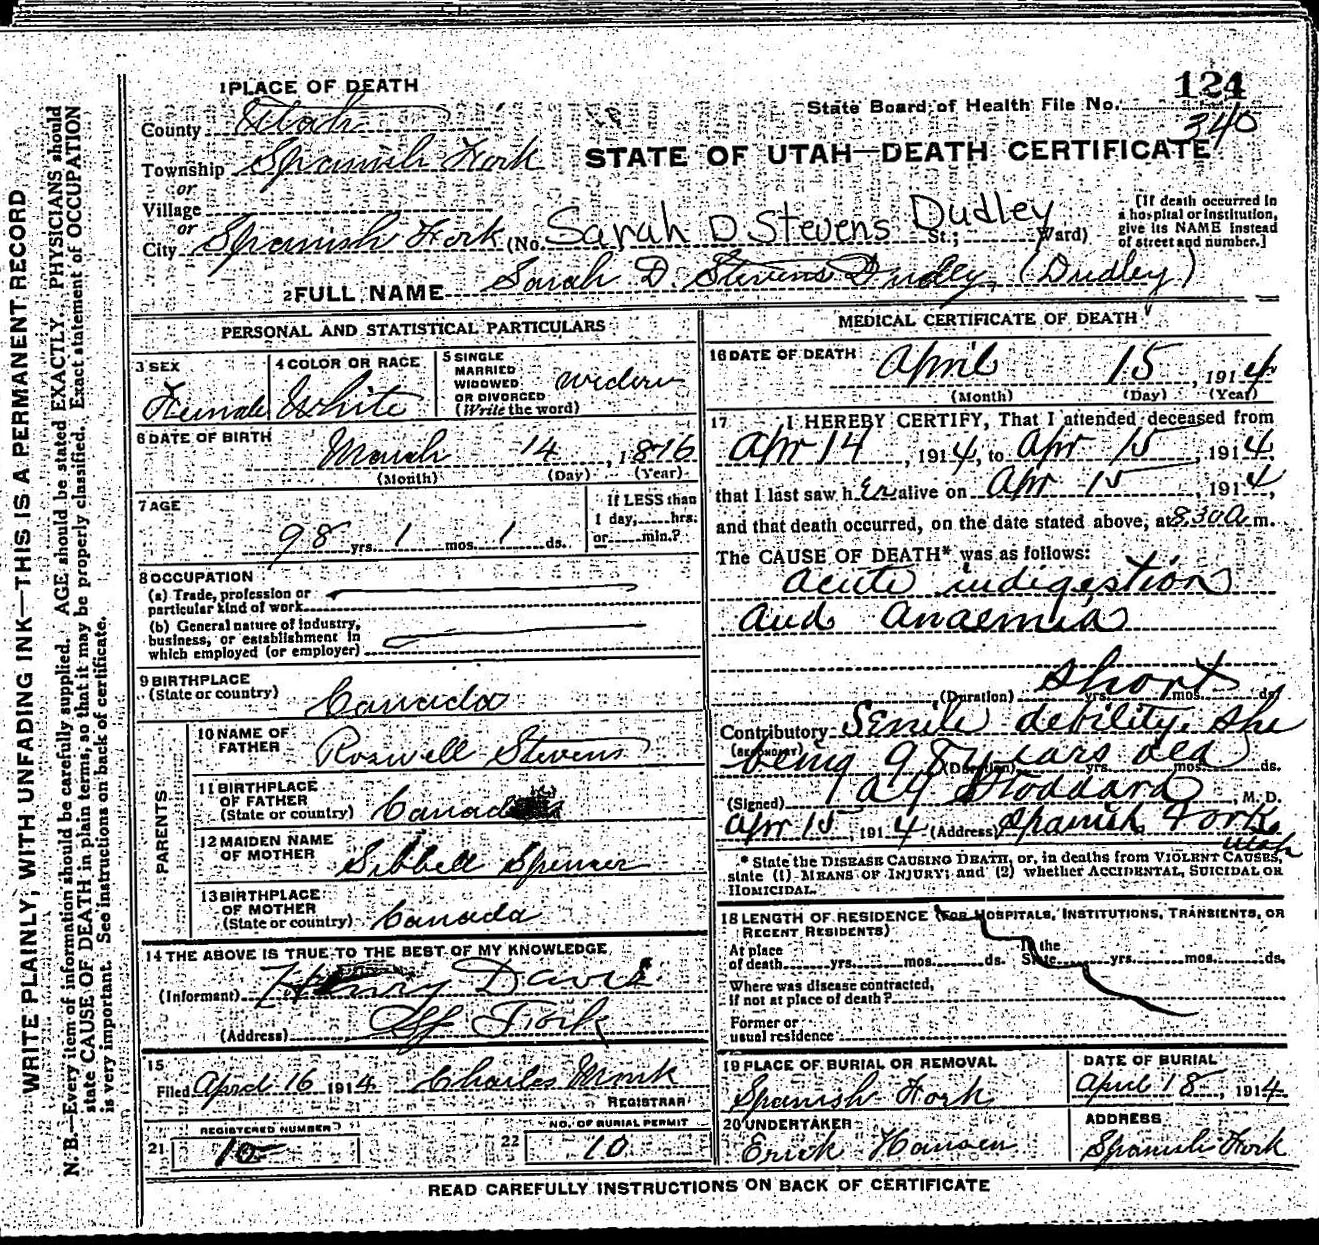 124
340
1 PLACE OF DEATH
State Board of Health File No.
County Utah
Township Spanish Fork
STATE OF UTAH—DEATH CERTIFICATE
or
Village
or
City Spanish Fork (No. Sarah D Stevens Dudley St.; Ward)
[If death occurred in
a hospital or institution,
give its NAME instead
of street and number.]
2 FULL NAME Sarah D. Stevens Dudley (Dudley)
PERSONAL AND STATISTICAL PARTICULARS
3 SEX
Female
4 COLOR OR RACE
White
5 SINGLE
MARRIED
WIDOWED
OR DIVORCED
(Write the word)
widow
6 DATE OF BIRTH
March 14, 1816
(Month) (Day) (Year)
7 AGE
98 yrs. 1 mos. 1 ds.
If LESS than
1 day, hrs.
or min.?
8 OCCUPATION
(a) Trade, profession or
particular kind of work
(b) General nature of industry,
business, or establishment in
which employed (or employer)
9 BIRTHPLACE
(State or country)
Canada
PARENTS
10 NAME OF
FATHER
Roswell Stevens
11 BIRTHPLACE
OF FATHER
(State or country) Canada
12 MAIDEN NAME
OF MOTHER
Sibbell Spencer
13 BIRTHPLACE
OF MOTHER
(State or country) Canada
14 THE ABOVE IS TRUE TO THE BEST OF MY KNOWLEDGE
(Informant) Henry Davis
(Address) Sp Fork
15
Filed April 16 1914 Charles Monk
REGISTRAR
REGISTERED NUMBER
21 10
NO. OF BURIAL PERMIT
22 10
MEDICAL CERTIFICATE OF DEATH
16 DATE OF DEATH
April 15, 1914
(Month) (Day) (Year)
17 I HEREBY CERTIFY, That I attended deceased from
Apr 14, 1914, to Apr 15, 1914,
that I last saw her alive on Apr 15, 1914,
and that death occurred, on the date stated above, at 8.30 a m.
The CAUSE OF DEATH* was as follows:
acute indigestion
and anaemia
(Duration) short yrs. mos. ds.
Contributory Senile debility, she
(SECONDARY) being 98 years old
(Duration) yrs. mos. ds.
(Signed) Stoddard, M. D.
Apr 15 1914 (Address) Spanish Fork
Utah
* State the DISEASE CAUSING DEATH, or, in deaths from VIOLENT CAUSES,
state (1) MEANS OF INJURY; and (2) whether ACCIDENTAL, SUICIDAL OR
HOMICIDAL.
18 LENGTH OF RESIDENCE (FOR HOSPITALS, INSTITUTIONS, TRANSIENTS, OR
RECENT RESIDENTS)
At place In the
of death yrs. mos. ds. State yrs. mos. ds.
Where was disease contracted,
if not at place of death?
Former or
usual residence
19 PLACE OF BURIAL OR REMOVAL
Spanish Fork
DATE OF BURIAL
April 18, 1914
20 UNDERTAKER
Erick Hansen
ADDRESS
Spanish Fork
READ CAREFULLY INSTRUCTIONS ON BACK OF CERTIFICATE
WRITE PLAINLY, WITH UNFADING INK—THIS IS A PERMANENT RECORD
N. B.—Every item of information should be carefully supplied. AGE should be stated EXACTLY. PHYSICIANS should
state CAUSE OF DEATH in plain terms, so that it may be properly classified. Exact statement of OCCUPATION
is very important. See instructions on back of certificate.